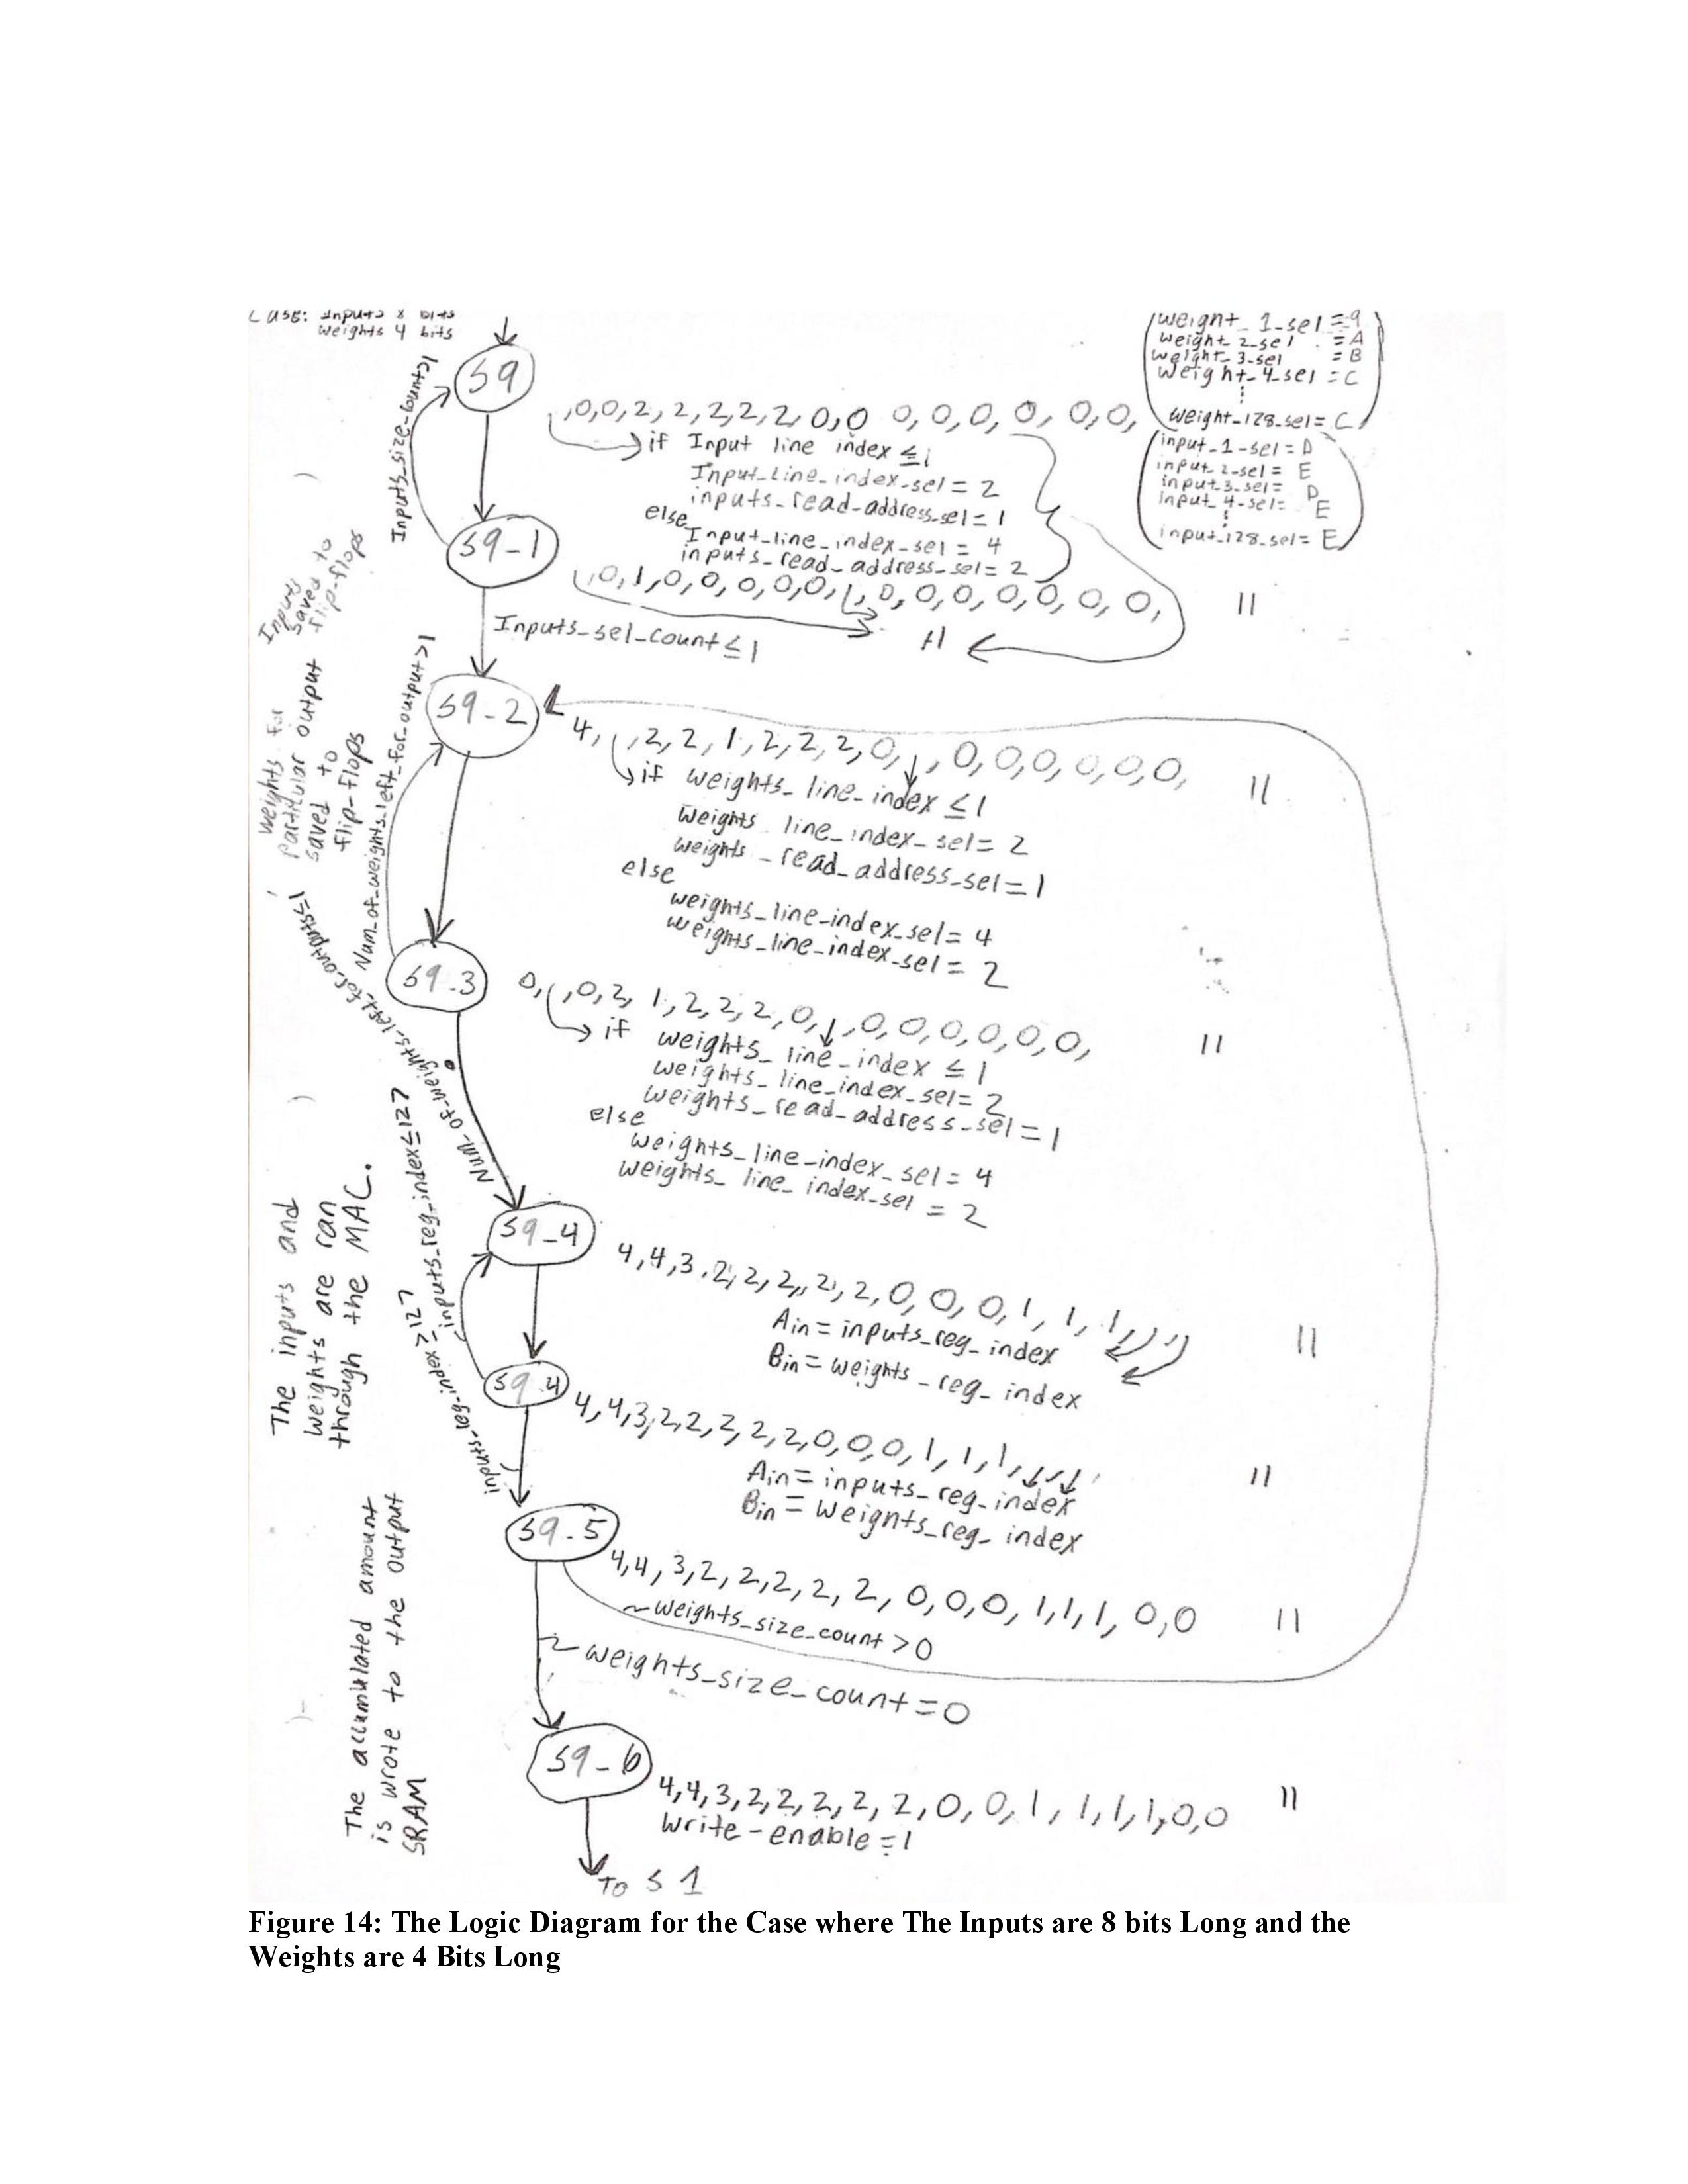 Case: Inputs 8 bits
Weights 4 bits
weight_1_sel = 9
weight_2_sel = A
weight_3_sel = B
weight_4_sel = C
weight_128_sel = C
input_1_sel = D
input_2_sel = E
input_3_sel = D
input_4_sel = E
input_128_sel = E
S9
Inputs_size_count>1
,0,0,2,2,2,2,2,0,0 0,0,0,0,0,0,
if Input line index ≤1
Input_Line_index_sel = 2
inputs_read_address_sel = 1
else
Input_line_index_sel = 4
inputs_read_address_sel = 2
S9-1
,0,1,0,0,0,0,0,1,0,0,0,0,0,0,0,0, 11
Inputs_sel_count ≤ 1
Inputs
saved to
flip-flops
S9-2
4, , ,2,2,1,2,2,2,2,0, , ,0,0,0,0,0,0, 11
if weights_line_index ≤1
weights line_index_sel = 2
weights_read_address_sel = 1
else
weights_line_index_sel = 4
weights_line_index_sel = 2
Num_of_weights_left_for_output>1
Weights for
particular output
saved to
flip-flops
S9.3
0, , ,0,2,1,2,2,2,2,0, , ,0,0,0,0,0,0, 11
if weights_line_index ≤ 1
weights_line_index_sel = 2
weights_read_address_sel = 1
else
weights_line_index_sel = 4
weights_line_index_sel
= 2
Num_of_weights_left_for_output≤1
S9_4
4,4,3,2,2,2,2,2,2,0,0,0,1,1,1,,,, 11
Ain = inputs_reg_index
Bin = weights_reg_index
inputs_reg_index≤127
The inputs and
weights are ran
through the MAC.
S9.4
4,4,3,2,2,2,2,2,2,0,0,0,1,1,1,,,, 11
Ain = inputs_reg_index
Bin = weights_reg_index
inputs_reg_index>127
S9-5
4,4,3,2,2,2,2,2,0,0,0,1,1,1,0,0 11
~weights_size_count > 0
weights_size_count = 0
The accumulated amount
is wrote to the output
SRAM
S9-6
4,4,3,2,2,2,2,2,2,0,0,1,1,1,1,0,0 11
Write-enable = 1
To S1
Figure 14: The Logic Diagram for the Case where The Inputs are 8 bits Long and the
Weights are 4 Bits Long